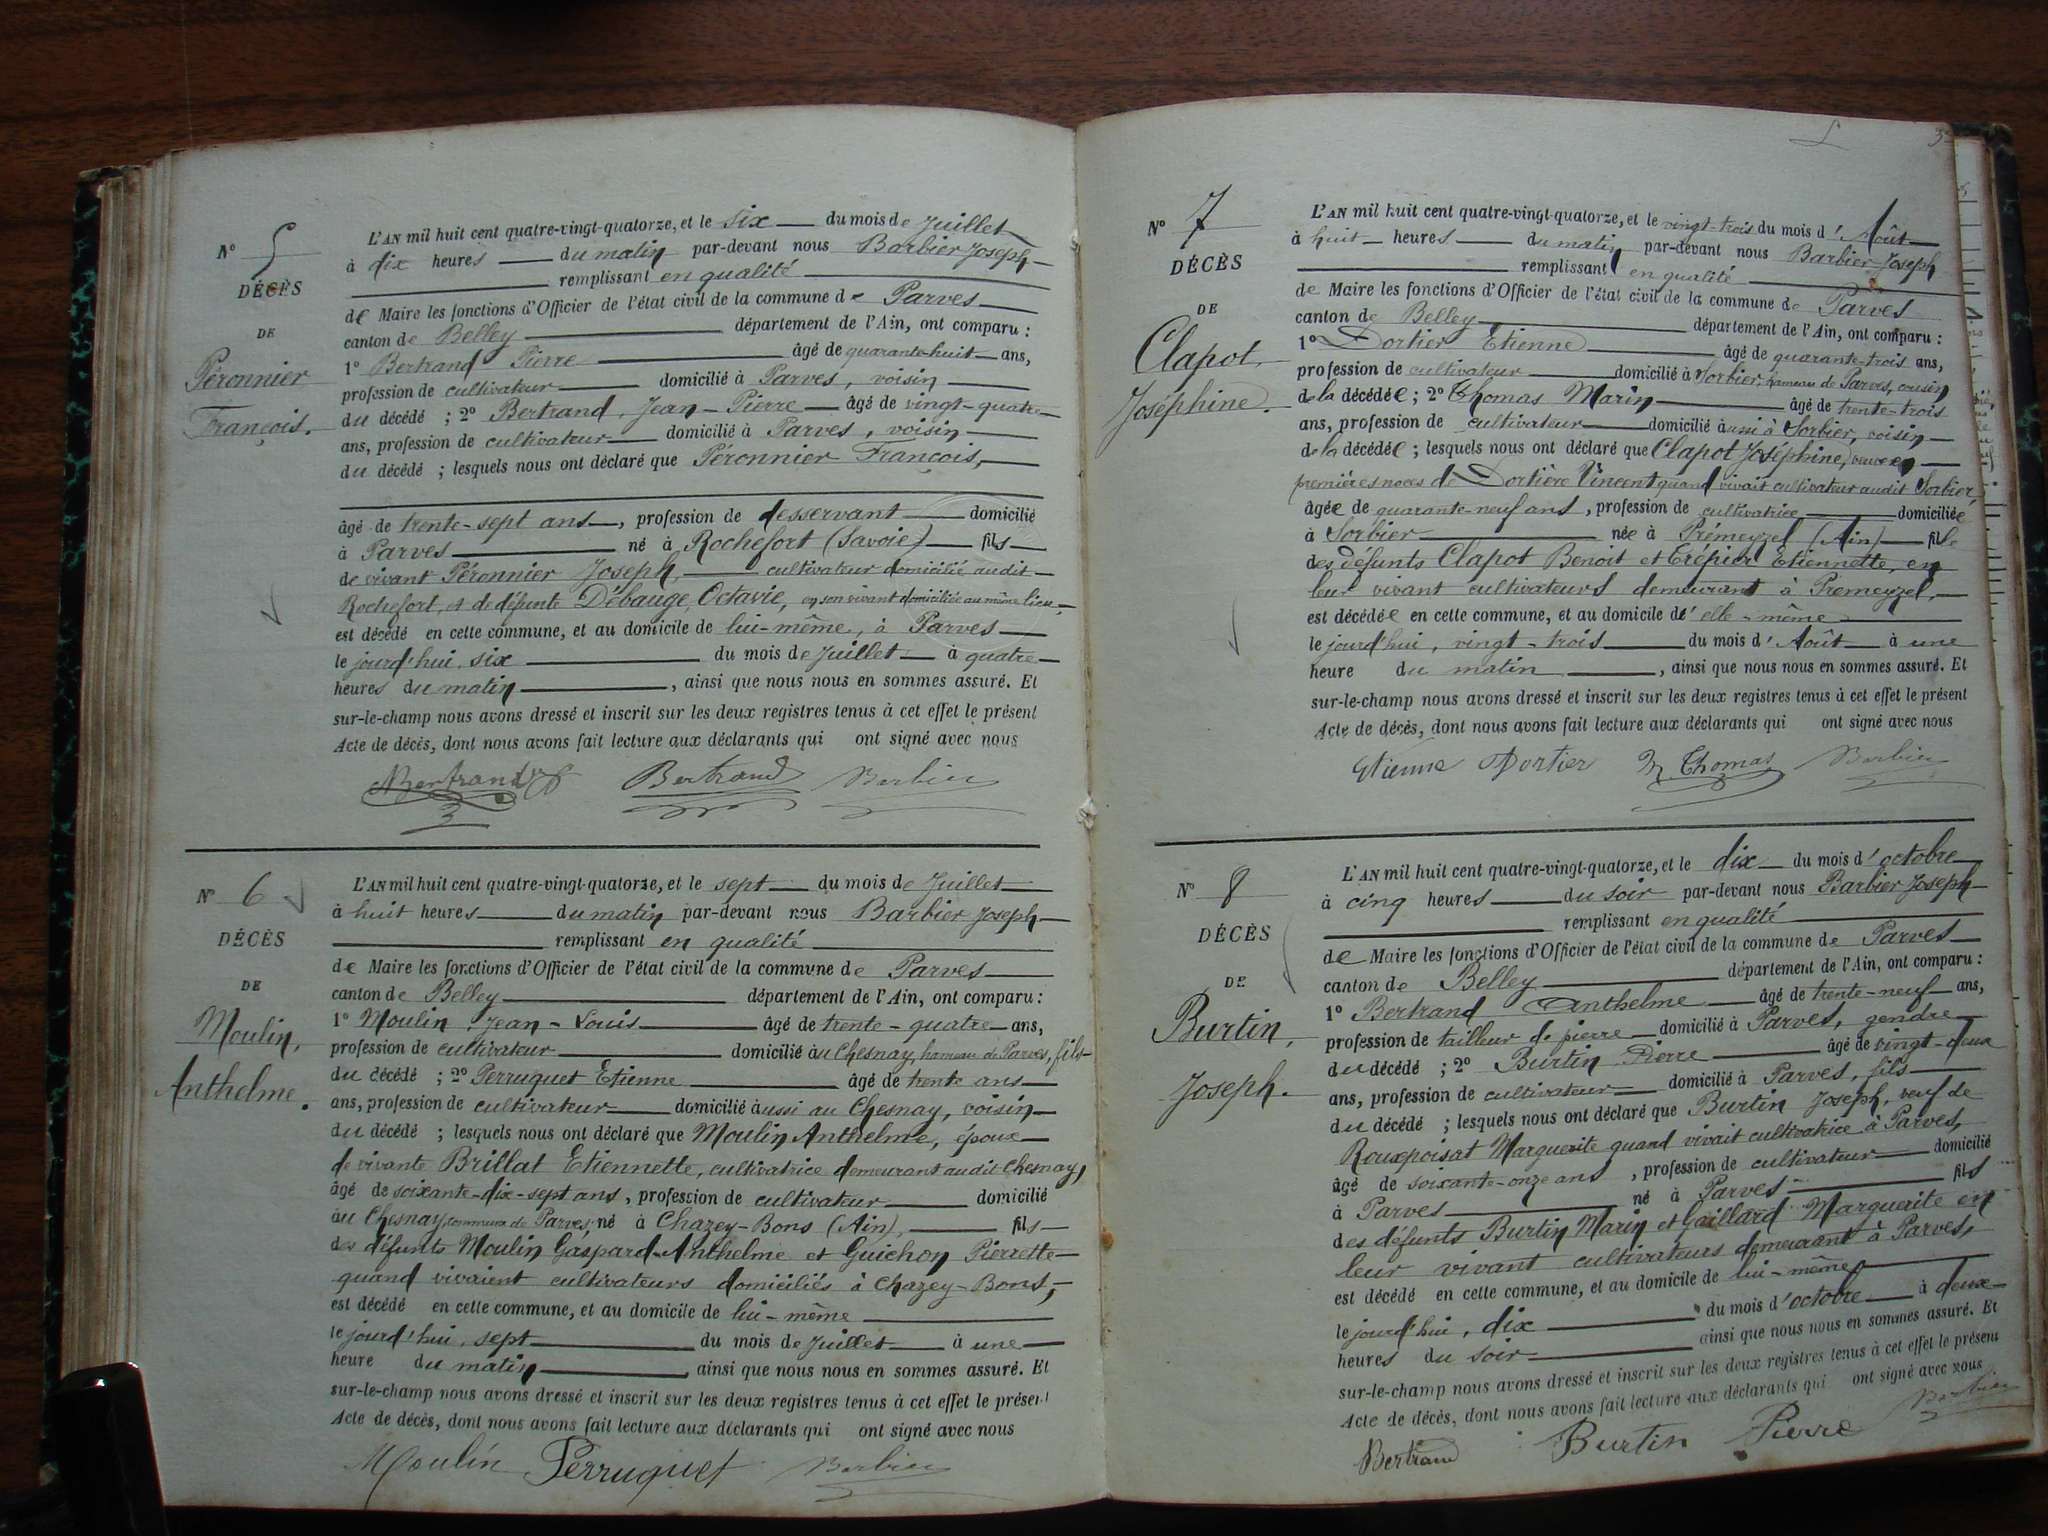 N° 5
DÉCÈS
DE
Péronnier
François.
L'AN mil huit cent quatre-vingt-quatorze, et le six du mois de Juillet
à dix heures du matin par-devant nous Barbier Joseph
remplissant en qualité
de Maire les fonctions d'Officier de l'état civil de la commune de Parves
canton de Belley département de l'Ain, ont comparu :
1° Bertrand Pierre âgé de quarante-huit ans,
profession de cultivateur domicilié à Parves, voisin
du décédé ; 2° Bertrand, Jean-Pierre âgé de vingt-quatre
ans, profession de cultivateur domicilié à Parves, voisin
du décédé ; lesquels nous ont déclaré que Péronnier François,
âgé de trente-sept ans, profession de desservant domicilié
à Parves né à Rochefort (Savoie) fils
de vivant Péronnier Joseph, cultivateur domicilié audit
Rochefort, et de défunte Débauge, Octavie, en son vivant domiciliée au même lieu,
est décédé en cette commune, et au domicile de lui-même, à Parves
le jourd'hui, six du mois de Juillet à quatre
heures du matin, ainsi que nous nous en sommes assuré. Et
sur-le-champ nous avons dressé et inscrit sur les deux registres tenus à cet effet le présent
Acte de décès, dont nous avons fait lecture aux déclarants qui ont signé avec nous
Bertrand Bertrand Barbier
N° 6
DÉCÈS
DE
Moulin,
Anthelme.
L'AN mil huit cent quatre-vingt-quatorze, et le sept du mois de Juillet
à huit heures du matin par-devant nous Barbier Joseph
remplissant en qualité
de Maire les fonctions d'Officier de l'état civil de la commune de Parves
canton de Belley département de l'Ain, ont comparu :
1° Moulin, Jean-Louis âgé de trente-quatre ans,
profession de cultivateur domicilié au Chesnay, hameau de Parves, fils
du décédé ; 2° Perruquet Etienne âgé de trente ans
ans, profession de cultivateur domicilié aussi au Chesnay, voisin
du décédé ; lesquels nous ont déclaré que Moulin Anthelme, époux
de vivante Brillat Etiennette, cultivatrice demeurant audit Chesnay,
âgé de soixante-dix-sept ans, profession de cultivateur domicilié
au Chesnay, commune de Parves né à Chazey-Bons (Ain), fils
des défunts Moulin Gaspard-Anthelme et Guichon Pierrette
quand vivaient cultivateurs domiciliés à Chazey-Bons,
est décédé en cette commune, et au domicile de lui-même
le jourd'hui, sept du mois de Juillet à une
heure du matin, ainsi que nous nous en sommes assuré. Et
sur-le-champ nous avons dressé et inscrit sur les deux registres tenus à cet effet le présent
Acte de décès, dont nous avons fait lecture aux déclarants qui ont signé avec nous
Moulin Perruquet Barbier
N° 7
DÉCÈS
DE
Clapot,
Joséphine.
L'AN mil huit cent quatre-vingt-quatorze, et le vingt-trois du mois d'Août
à huit heures du matin par-devant nous Barbier Joseph
remplissant en qualité
de Maire les fonctions d'Officier de l'état civil de la commune de Parves
canton de Belley département de l'Ain, ont comparu :
1° Dortier Etienne âgé de quarante-trois ans,
profession de cultivateur domicilié à Sorbier, hameau de Parves, cousin
de la décédée ; 2° Thomas Marin âgé de trente-trois
ans, profession de cultivateur domicilié aussi à Sorbier, voisin
de la décédée ; lesquels nous ont déclaré que Clapot Joséphine, veuve en
premières noces de Dortière Vincent quand vivait cultivateur audit Sorbier,
âgée de quarante-neuf ans, profession de cultivatrice domiciliée
à Sorbier née à Prémeyzel (Ain) fille
des défunts Clapot Benoit et Crépier Etiennette, en
leur vivant cultivateurs demeurant à Premeyzel,
est décédée en cette commune, et au domicile d'elle-même
le jourd'hui, vingt-trois du mois d'Août à une
heure du matin, ainsi que nous nous en sommes assuré. Et
sur-le-champ nous avons dressé et inscrit sur les deux registres tenus à cet effet le présent
Acte de décès, dont nous avons fait lecture aux déclarants qui ont signé avec nous
Etienne Dortier M. Thomas Barbier
N° 8
DÉCÈS
DE
Burtin,
Joseph.
L'AN mil huit cent quatre-vingt-quatorze, et le dix du mois d'octobre
à cinq heures du soir par-devant nous Barbier Joseph
remplissant en qualité
de Maire les fonctions d'Officier de l'état civil de la commune de Parves
canton de Belley département de l'Ain, ont comparu :
1° Bertrand Anthelme âgé de trente-neuf ans,
profession de tailleur de pierre domicilié à Parves, gendre
du décédé ; 2° Burtin Pierre âgé de vingt-deux
ans, profession de cultivateur domicilié à Parves, fils
du décédé ; lesquels nous ont déclaré que Burtin Joseph, veuf de
Rouxpoisat Marguerite quand vivait cultivatrice à Parves,
âgé de soixante-onze ans, profession de cultivateur domicilié
à Parves né à Parves fils
des défunts Burtin Marin et Gaillard Marguerite en
leur vivant cultivateurs demeurant à Parves,
est décédé en cette commune, et au domicile de lui-même
le jourd'hui, dix du mois d'octobre à deux
heures du soir ainsi que nous nous en sommes assuré. Et
sur-le-champ nous avons dressé et inscrit sur les deux registres tenus à cet effet le présent
Acte de décès, dont nous avons fait lecture aux déclarants qui ont signé avec nous
Bertrand Burtin Pierre Barbier